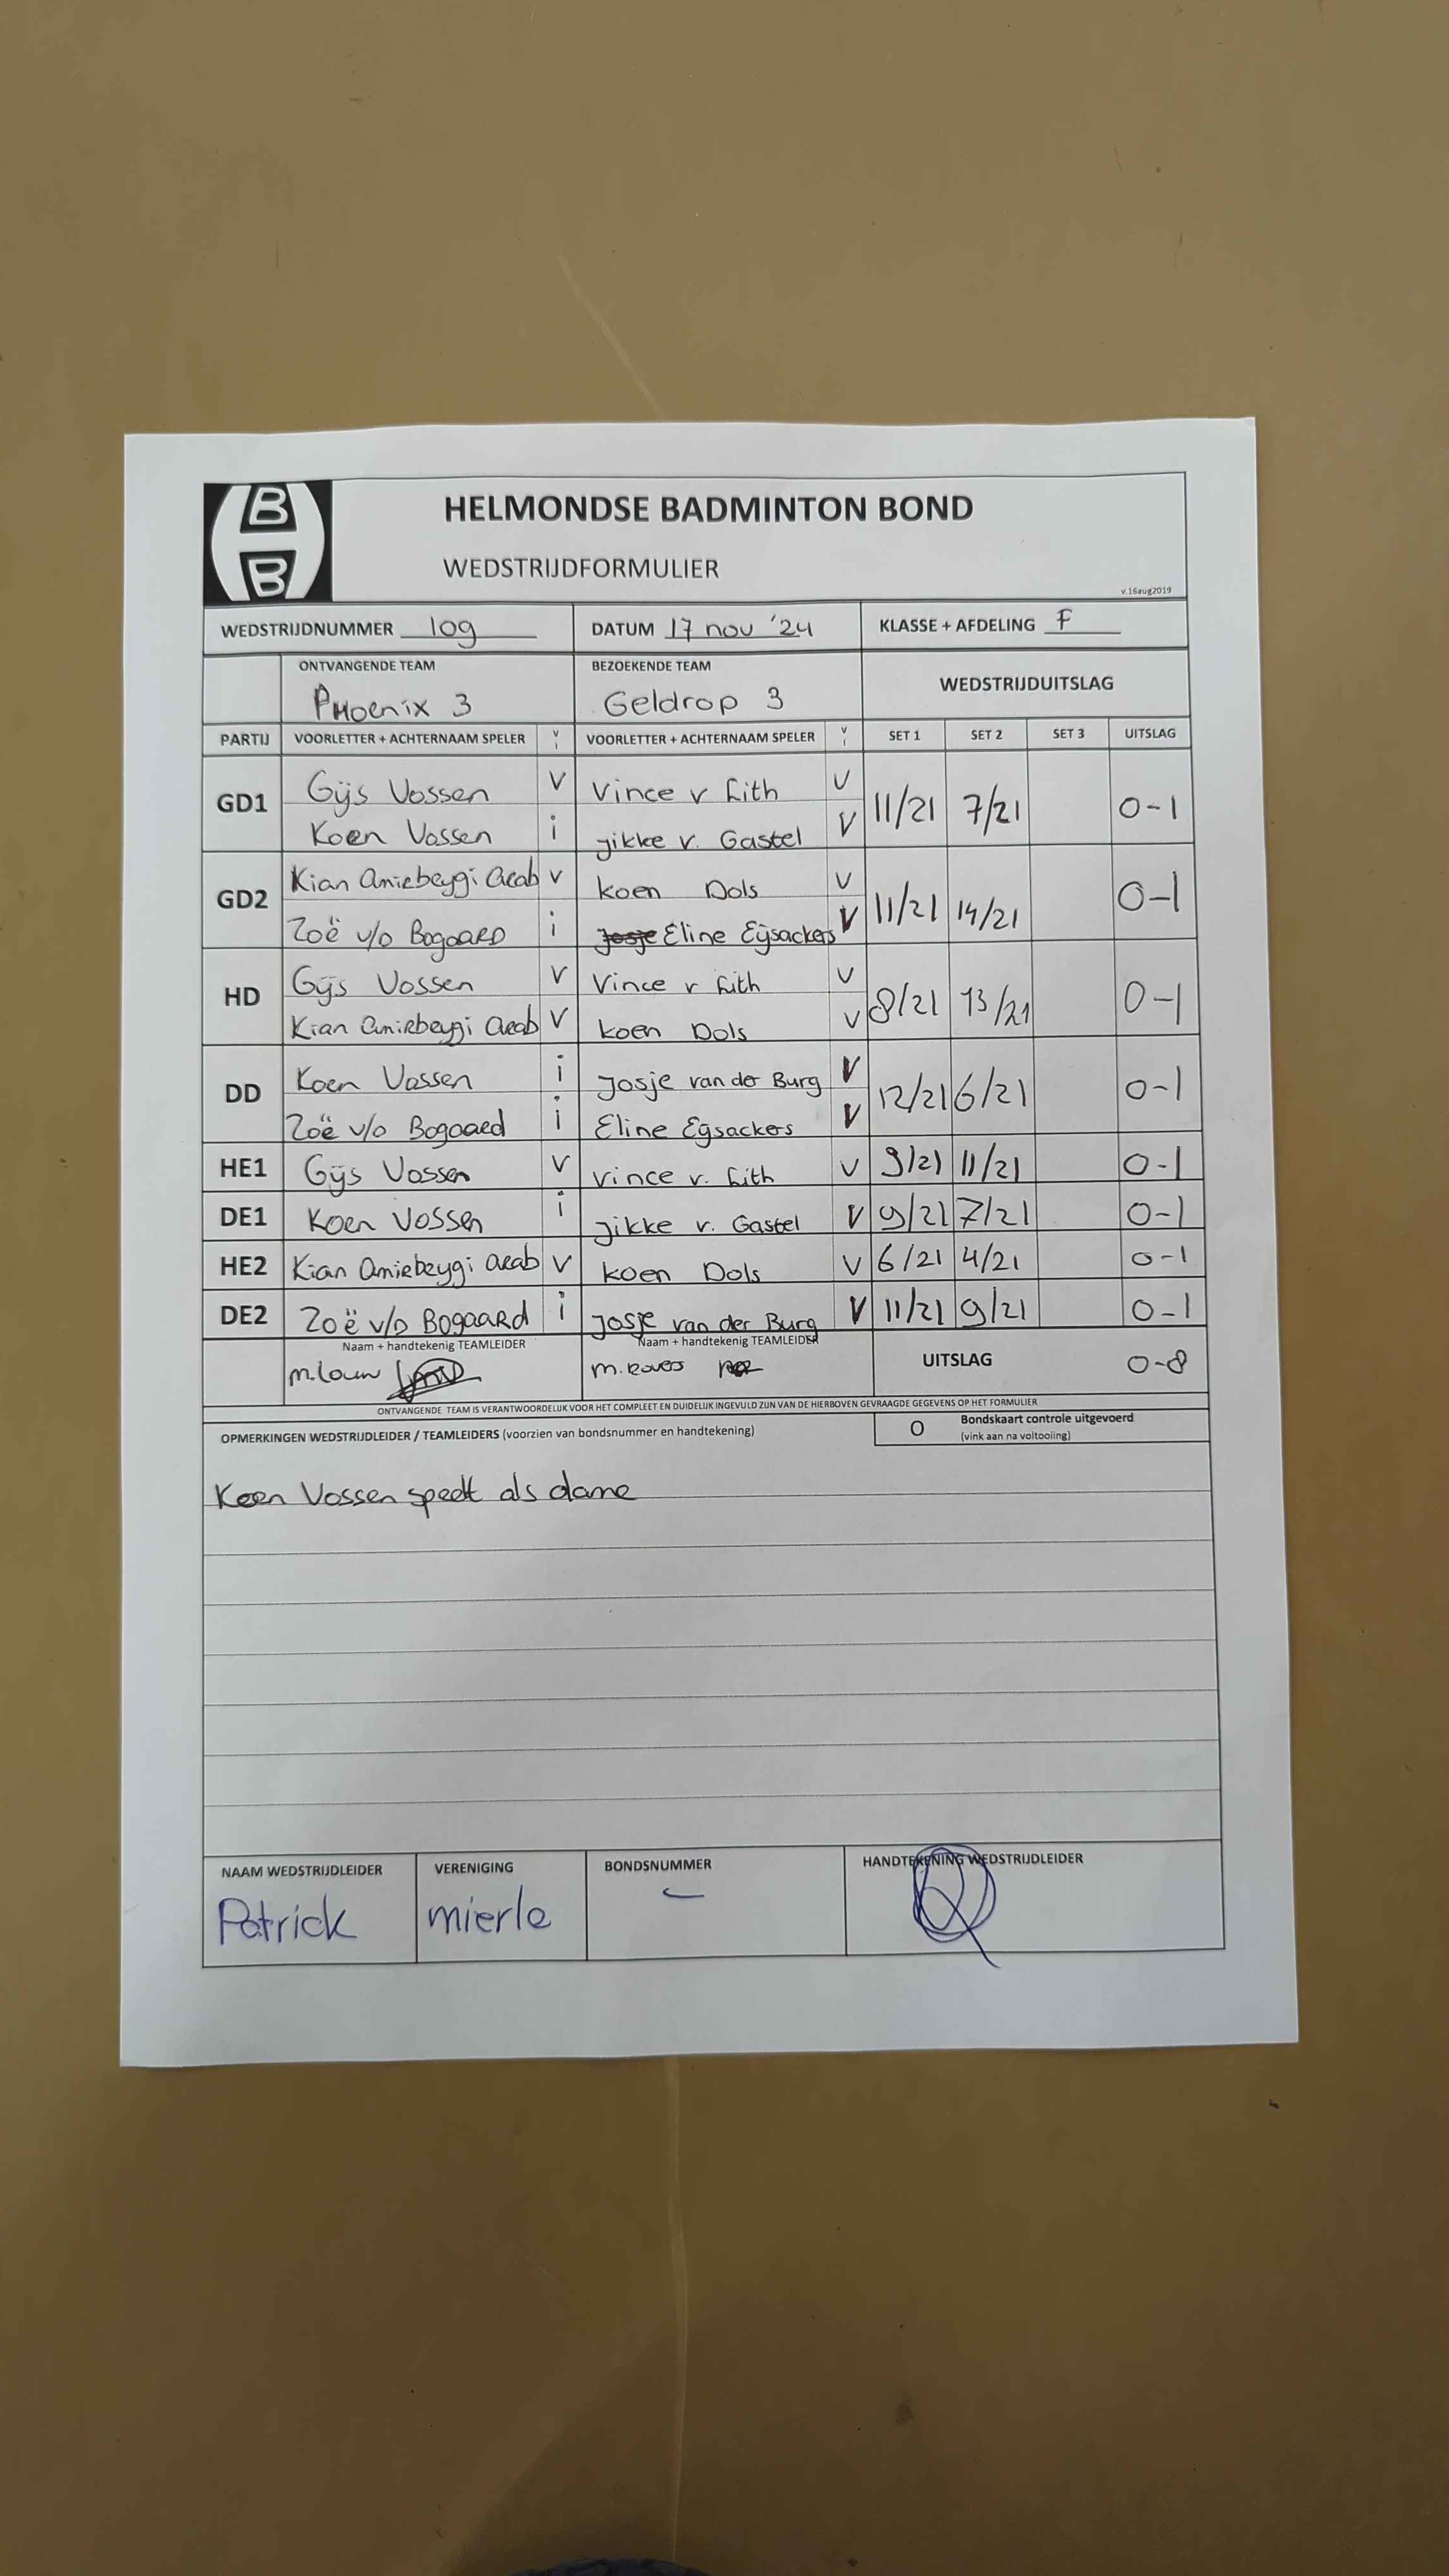 B
B
HELMONDSE BADMINTON BOND
WEDSTRIJDFORMULIER
v.16aug2019
WEDSTRIJDNUMMER 109 DATUM 17 nov '24 KLASSE + AFDELING F
ONTVANGENDE TEAM BEZOEKENDE TEAM WEDSTRIJDUITSLAG
PHoenix 3 Geldrop 3
PARTIJ VOORLETTER + ACHTERNAAM SPELER V I VOORLETTER + ACHTERNAAM SPELER V I SET 1 SET 2 SET 3 UITSLAG
GD1 Gijs Vossen V Vince v Lith V 11/21 7/21 0-1
Koen Vossen i jikke v. Gastel V
GD2 Kian Amirbeygi Arab V koen Dols V 11/21 14/21 0-1
Zoë v/d Bogaard i Josje Eline Eijsackers V
HD Gijs Vossen V Vince v Lith V 8/21 13/21 0-1
Kian Amirbeygi Arab V koen Dols V
DD Koen Vossen i Josje van der Burg V 12/21 6/21 0-1
Zoë v/d Bogaard i Eline Eijsackers V
HE1 Gijs Vossen V Vince v. Lith V 9/21 11/21 0-1
DE1 Koen Vossen i jikke v. Gastel V 9/21 7/21 0-1
HE2 Kian Amirbeygi Arab V koen Dols V 6/21 4/21 0-1
DE2 Zoë v/d Bogaard i Josje van der Burg V 11/21 9/21 0-1
Naam + handtekenig TEAMLEIDER Naam + handtekenig TEAMLEIDER
m. Louw m. UITSLAG 0-8
ONTVANGENDE TEAM IS VERANTWOORDELIJK VOOR HET COMPLEET EN DUIDELIJK INGEVULD ZIJN VAN DE HIERBOVEN GEVRAAGDE GEGEVENS OP HET FORMULIER
OPMERKINGEN WEDSTRIJDLEIDER / TEAMLEIDERS (voorzien van bondsnummer en handtekening) O Bondskaart controle uitgevoerd
(vink aan na voltooiing)
Koen Vossen speelt als dame
NAAM WEDSTRIJDLEIDER VERENIGING BONDSNUMMER HANDTEKENING WEDSTRIJDLEIDER
Patrick mierlo -